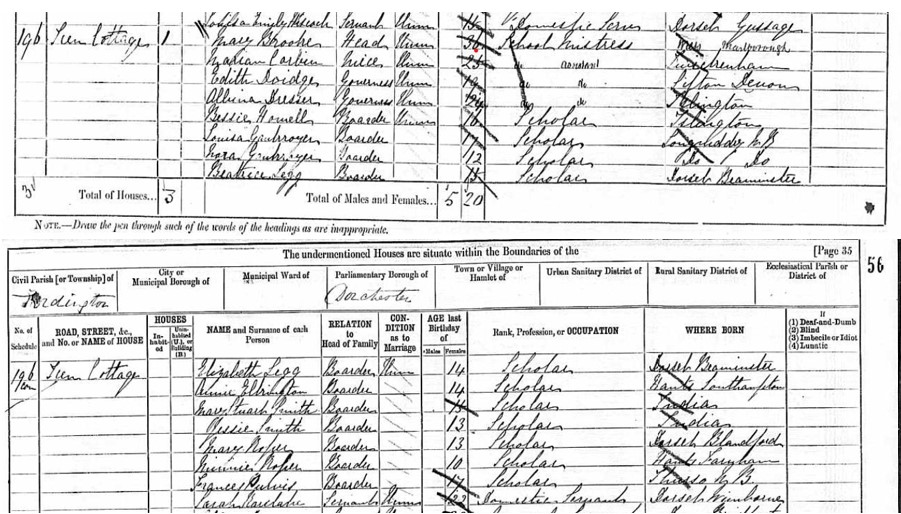 Servant Unm 15 Domestic Serv Dorset Gussage
196 Fern Cottage 1 Mary Brooker Head Unm 36 School Mistress Wilts Marlborough
Marian Corbin Niece Unm 25 do assistant Twickenham
Edith Doidge Governess Unm 19 do do Lifton Devon
Albina Dresser Governess Unm 24 do do Islington
Bessie Howell Boarder Unm 16 Scholar Islington
Louisa Boarder 17 Scholar
Nora Boarder 12 Scholar Do Do
Beatrice Legg Boarder 15 Scholar Dorset Beaminster
Total of Houses... 3 Total of Males and Females... 5 20
NOTE.—Draw the pen through such of the words of the headings as are inappropriate.
The undermentioned Houses are situate within the Boundaries of the [Page 35
56
Civil Parish [or Township] of City or Municipal Borough of Municipal Ward of Parliamentary Borough of Town or Village or Hamlet of Urban Sanitary District of Rural Sanitary District of Ecclesiastical Parish or District of
Fordington Dorchester
No. of Schedule ROAD, STREET, &c., and No. or NAME of HOUSE HOUSES Inhabited Uninhabited (U.), or Building (B.) NAME and Surname of each Person RELATION to Head of Family CONDITION as to Marriage AGE last Birthday of Males Females Rank, Profession, or OCCUPATION WHERE BORN If (1) Deaf-and-Dumb (2) Blind (3) Imbecile or Idiot (4) Lunatic
196 Fern Cottage Elizabeth Legg Boarder Unm 14 Scholar Dorset Beaminster
Annie Elbrington Boarder 14 Scholar Hants Southampton
Mary Stuart Smith Boarder Scholar India
Bessie Smith Boarder 13 Scholar India
Mary Roper Boarder 13 Scholar Dorset Blandford
Minnie Roper Boarder 10 Scholar Hants Farnham
Frances Purvis Boarder 17 Scholar Thurso N.B.
Sarah Servant Unm 22 Domestic Servant Dorset Wimborne